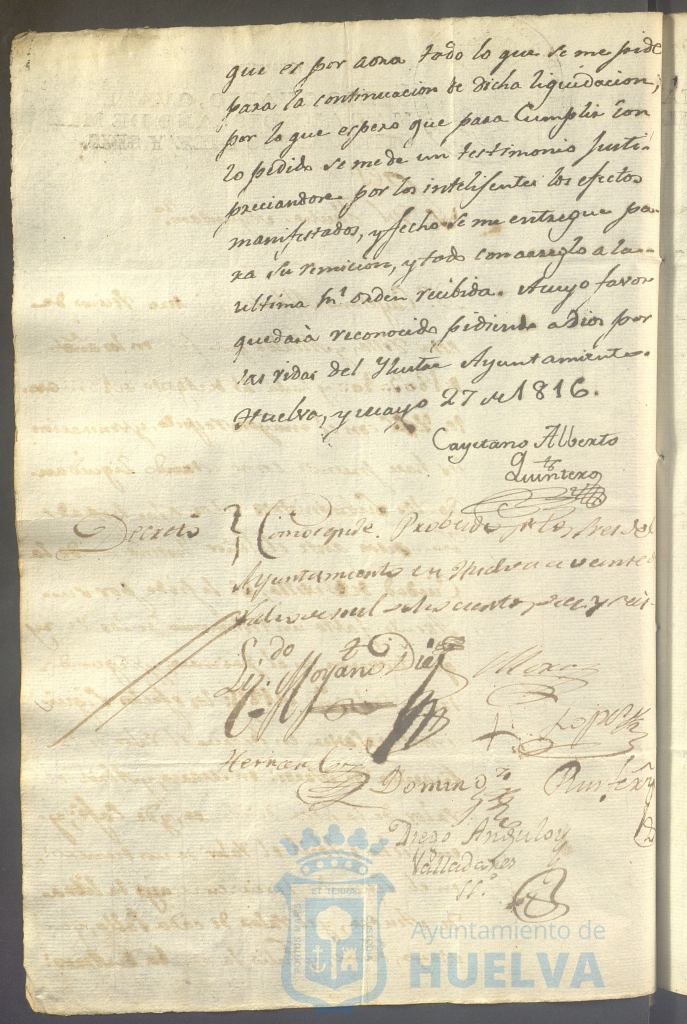 que es por aora todo lo que se me pide
para la continuacion de dicha liquidacion,
por lo que espero que para Cumplir con
lo pedido se me de un testimonio Justi-
preciandore por los intelisentes los efectos
manifestados, y fecho se me entregue pa-
ra su remicion, y todo con arreglo a la
ultima Rl. orden recibida. Acuyo favor
quedará reconocido pidiendo a Dios por
las vidas del Ylustre Ayuntamiento.
Huelva, y mayo 27 de 1816.
Cayetano Alberto
Quintero
Decreto Concequide. Probeido
Ayuntamiento en Huelva a veinte
Lizdo. Moyano Diaz
Mora
Lopez
Hernan
Domingo
Diego Angulo y
Valladares
SSº.
Ayuntamiento de
HUELVA